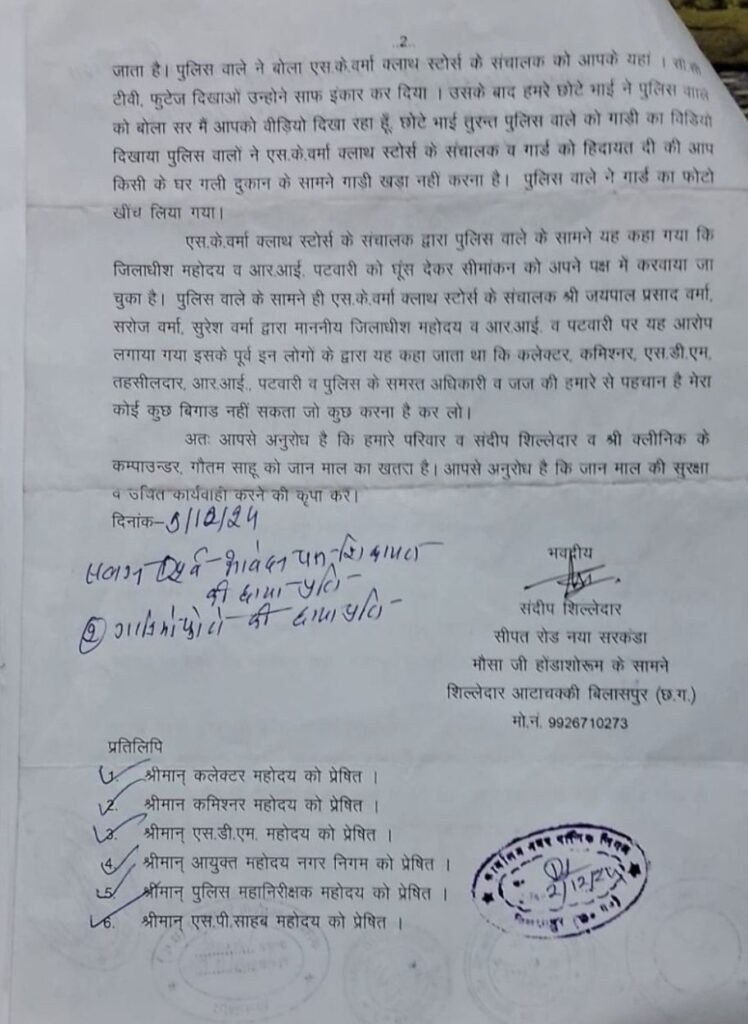 ..2..
जाता है। पुलिस वाले ने बोला एस.के.वर्मा क्लाथ स्टोर्स के संचालक को आपके यहां । सी.सी.
टीवी, फुटेज दिखाओं उन्होने साफ इंकार कर दिया । उसके बाद हमरे छोटे भाई ने पुलिस वाले
को बोला सर मैं आपको वीड़ियो दिखा रहा हूँ, छोटे भाई तुरन्त पुलिस वाले को गाड़ी का विडियो
दिखाया पुलिस वालों ने एस.के.वर्मा क्लाथ स्टोर्स के संचालक व गार्ड को हिदायत दी की आप
किसी के घर गली दुकान के सामने गाड़ी खड़ा नहीं करना है। पुलिस वाले ने गार्ड का फोटो
खींच लिया गया।
एस.के.वर्मा क्लाथ स्टोर्स के संचालक द्वारा पुलिस वाले के सामने यह कहा गया कि
जिलाधीश महोदय व आर.आई. पटवारी को घूंस देकर सीमांकन को अपने पक्ष में करवाया जा
चुका है। पुलिस वाले के सामने ही एस.के.वर्मा क्लाथ स्टोर्स के संचालक श्री जयपाल प्रसाद वर्मा,
सरोज वर्मा, सुरेश वर्मा द्वारा माननीय जिलाधीश महोदय व आर.आई. व पटवारी पर यह आरोप
लगाया गया इसके पूर्व इन लोगों के द्वारा यह कहा जाता था कि कलेक्टर, कमिश्नर, एस.डी.एम,
तहसीलदार, आर.आई., पटवारी व पुलिस के समस्त अधिकारी व जज की हमारे से पहचान है मेरा
कोई कुछ बिगाड नहीं सकता जो कुछ करना है कर लो।
अतः आपसे अनुरोध है कि हमारे परिवार व संदीप शिल्लेदार व श्री क्लीनिक के
कम्पाउन्डर, गौतम साहू को जान माल का खतरा है। आपसे अनुरोध है कि जान माल की सुरक्षा
व उचित कार्यवाही करने की कृपा करें।
दिनांक–5/12/24
संलग्न पूर्व आवेदन पत्र-शिकायत
की छाया प्रति-
② की छायाप्रति-
भवदीय
संदीप शिल्लेदार
सीपत रोड नया सरकंडा
मौसा जी होंडाशोरूम के सामने
शिल्लेदार आटाचक्की बिलासपुर (छ.ग.)
मो.नं. 9926710273
प्रतिलिपि
1. श्रीमान् कलेक्टर महोदय को प्रेषित ।
2. श्रीमान कमिश्नर महोदय को प्रेषित ।
3. श्रीमान् एस.डी.एम. महोदय को प्रेषित ।
4. श्रीमान् आयुक्त महोदय नगर निगम को प्रेषित ।
5. श्रीमान् पुलिस महानिरीक्षक महोदय को प्रेषित ।
6. श्रीमान् एस.पी.साहब महोदय को प्रेषित ।
कार्यालय नगर पालिक निगम
2/12/24
बिलासपुर (छ.ग.)